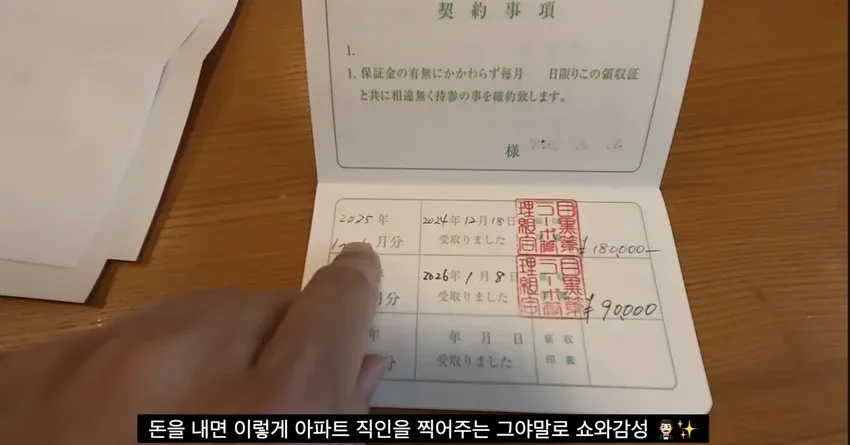 契約事項
1.
1. 保証金の有無にかかわらず毎月 日限りこの領収証
と共に相違無く持参の事を確約致します。
様
2025年
月分
2024年12月18日
受取りました
目黒第
コーポ管
理組合
¥180,000-
月分
2026年1月8日
受取りました
目黒第
コーポ管
理組合
¥90,000
年
月分
年 月 日
受取りました
領収
印鑑
돈을 내면 이렇게 아파트 직인을 찍어주는 그야말로 쇼와감성 👨🏻‍💼✨